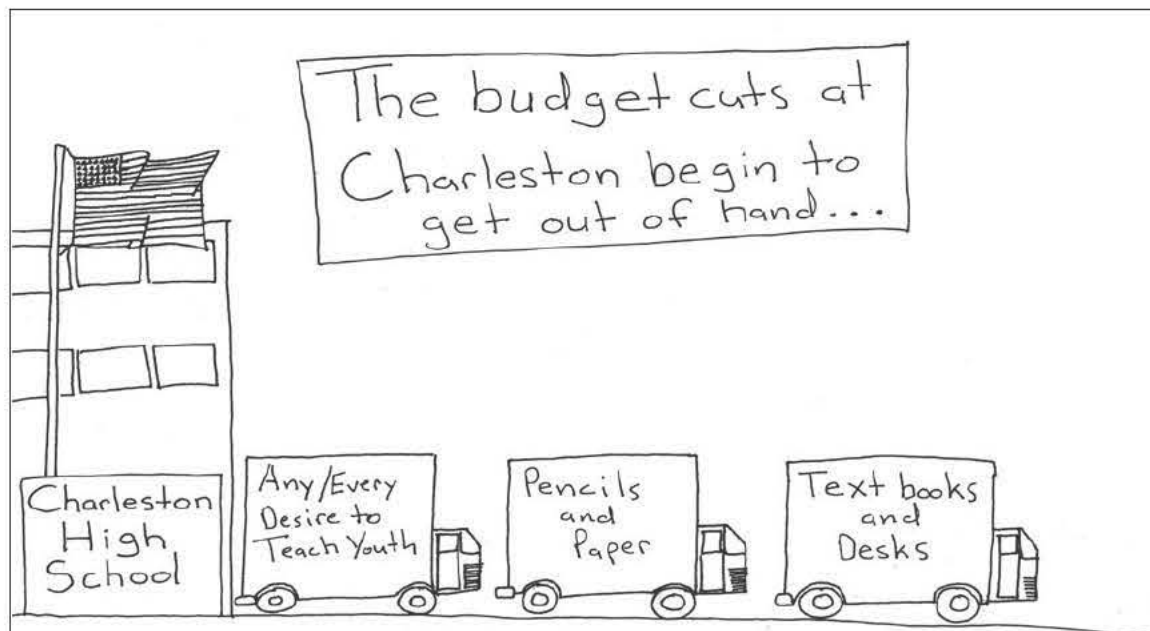 The budget cuts at
Charleston begin to
get out of hand...
Charleston
High
School
Any/Every
Desire to
Teach Youth
Pencils
and
Paper
Text books
and
Desks